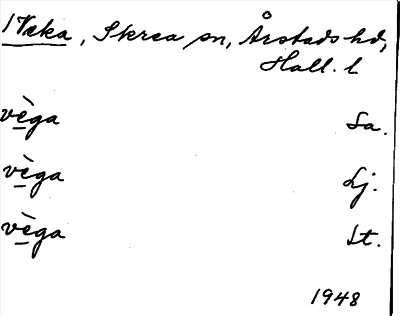 1 Veka, Skrea sn, Årstads hd,
Hall. l
vèga Sa.
vèga Lj.
vèga St.
1948